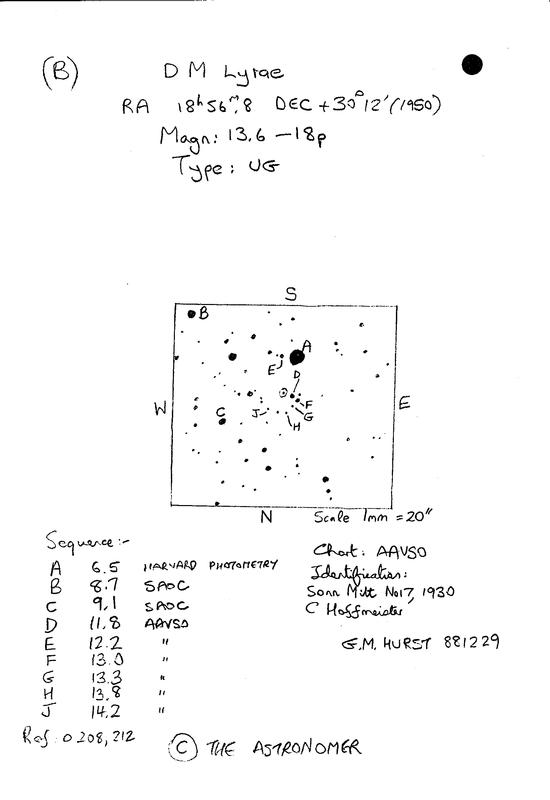 (B)
DM Lyrae
RA 18h 56m.8 DEC +30° 12' (1950)
Magn: 13.6 – 18p
Type: UG
S
B
A
E
D
W
E
C
J
F
G
H
N
Scale 1mm = 20"
Sequence:-
A 6.5 HARVARD PHOTOMETRY
B 8.7 SAOC
C 9.1 SAOC
D 11.8 AAVSO
E 12.2 "
F 13.0 "
G 13.3 "
H 13.8 "
J 14.2 "
Chart: AAVSO
Identification:
Sonn Mitt No17, 1930
C Hoffmeister
G.M. HURST 881229
Ref: 0208, 212
© THE ASTRONOMER